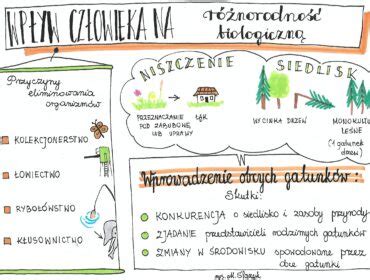 WPŁYW CZŁOWIEKA NA
różnorodność
biologiczną
Przyczyny
eliminowania
organizmów
KOLEKCJONERSTWO
ŁOWIECTWO
RYBOŁÓWSTWO
KŁUSOWNICTWO
NISZCZENIE SIEDLISK
PRZEZNACZANIE ŁĄK
POD ZABUDOWĘ
LUB UPRAWY
WYCINKA DRZEW
MONOKULTU
LEŚNE
(1 gatunek
drzew)
Wprowadzenie obcych gatunków:
Skutki:
KONKURENCJA o siedlisko i zasoby przyrody
ZJADANIE przedstawicieli rodzimych gatunków
ZMIANY W ŚRODOWISKU spowodowane przez
obce gatunki